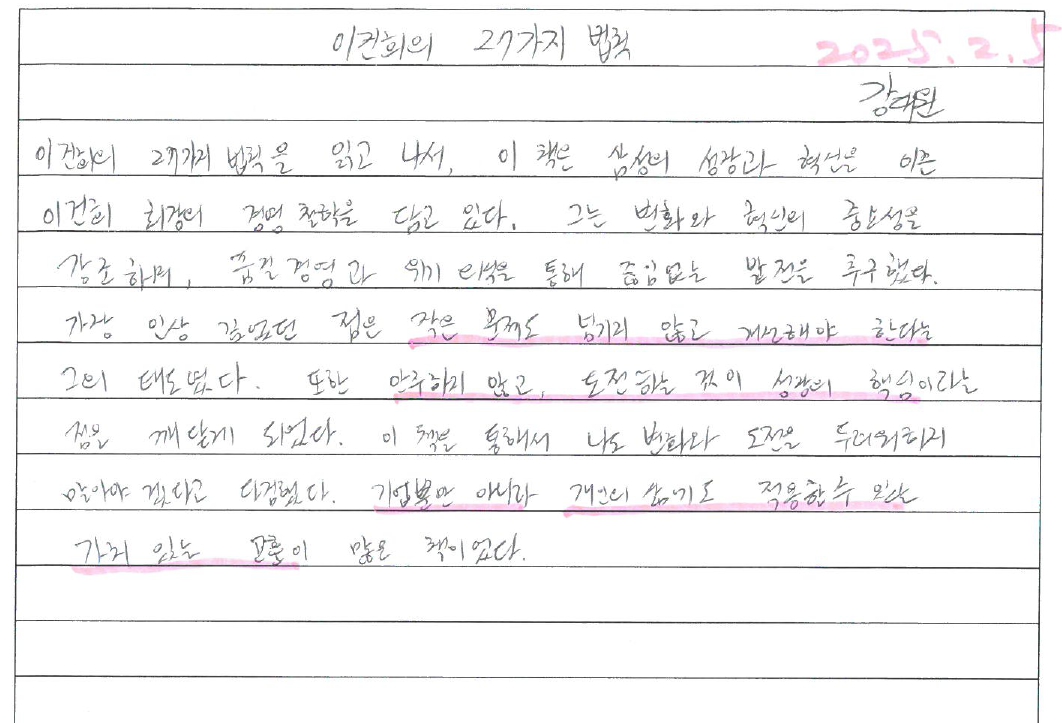 이건희의 27가지 법칙
2025.2.5
강대원
이건희의 27가지 법칙을 읽고 나서, 이 책은 삼성의 성장과 혁신을 이끈
이건희 회장의 경영 철학을 담고 있다. 그는 변화와 혁신의 중요성을
강조하며, 품질경영과 위기 의식을 통해 끊임없는 발전을 추구했다.
가장 인상 깊었던 점은 작은 문제도 넘기지 않고 개선해야 한다는
그의 태도였다. 또한 안주하지 않고, 도전하는 것이 성장의 핵심이라는
점을 깨닫게 되었다. 이 책을 통해서 나도 변화와 도전을 두려워하지
말아야 겠다고 다짐했다. 기업뿐만 아니라 개인의 삶에도 적용할 수 있는
가치 있는 교훈이 많은 책이었다.